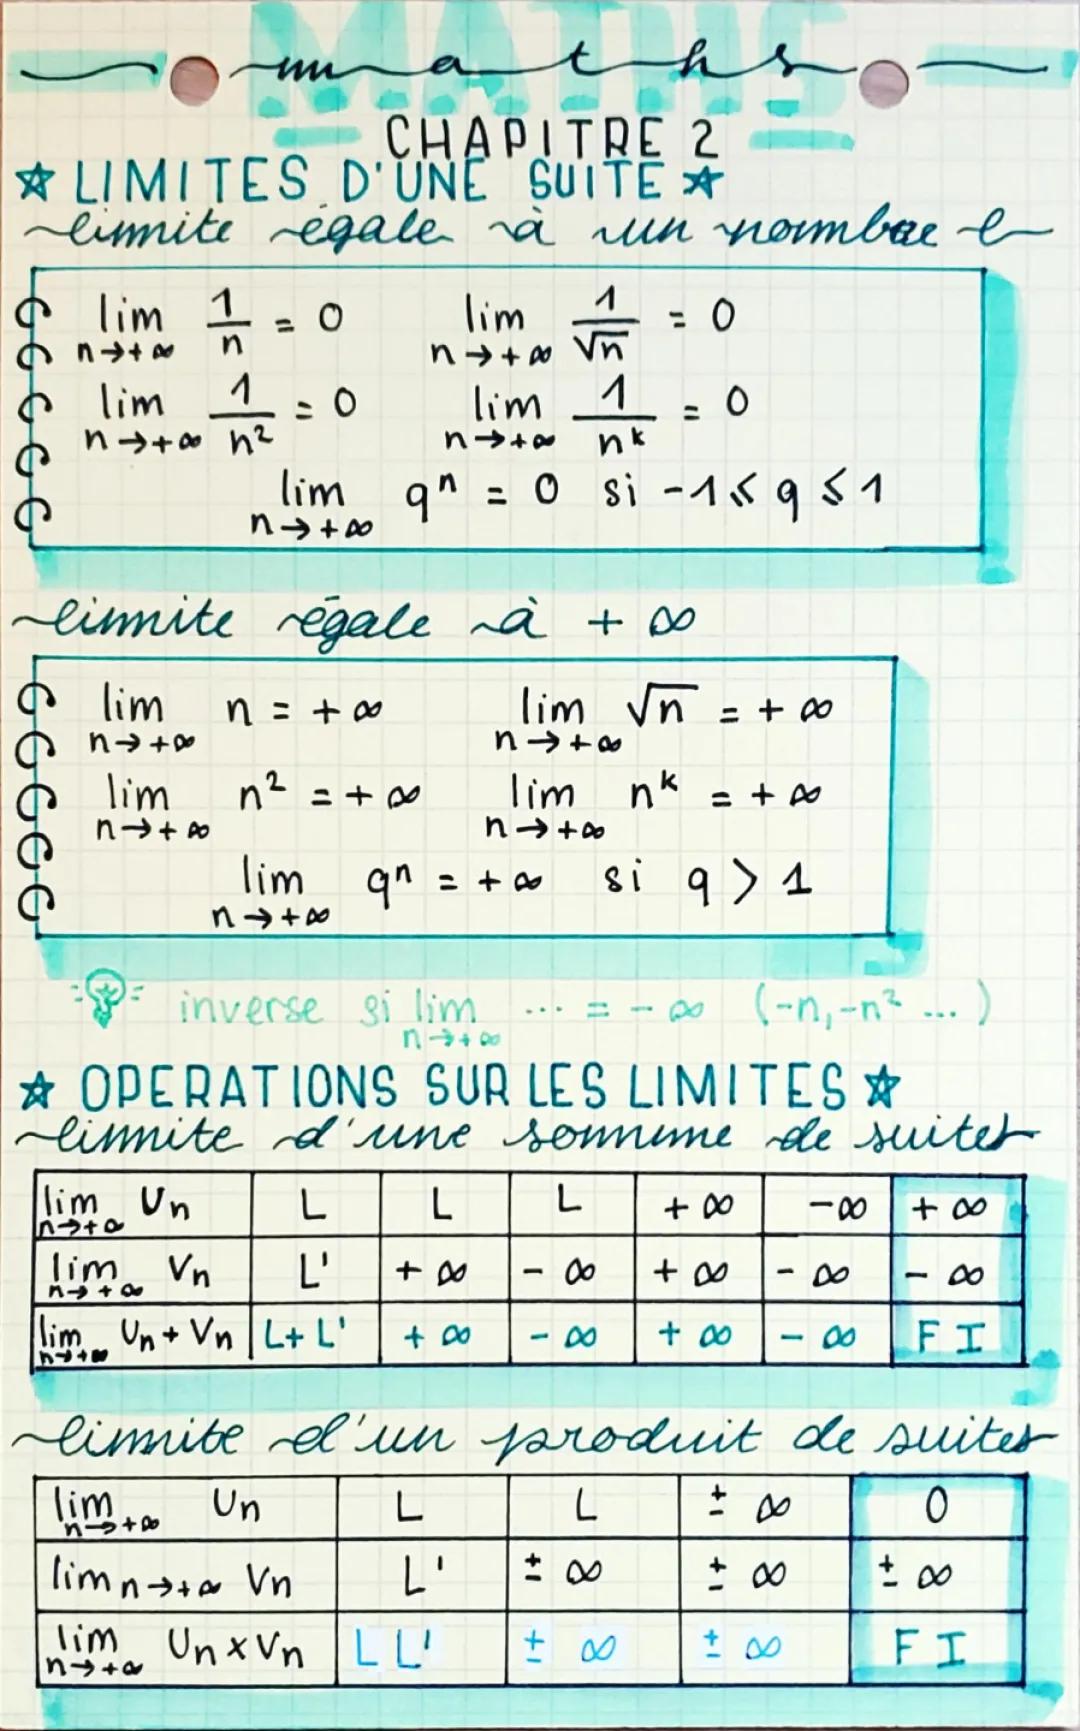 MATHS
maths
CHAPITRE 2
☆ LIMITES D'UNE SUITE ☆
limite égale à un nombre l
lim n→+∞ 1/n = 0    lim n→+∞ 1/√n = 0
lim n→+∞ 1/n² = 0    lim n→+∞ 1/n^k = 0
lim n→+∞ q^n = 0 si -1 ≤ q ≤ 1
limite égale à + ∞
lim n→+∞ n = +∞    lim n→+∞ √n = +∞
lim n→+∞ n² = +∞    lim n→+∞ n^k = +∞
lim n→+∞ q^n = +∞ si q > 1
inverse si lim n→+∞ ... = -∞ (-n, -n² ...)
☆ OPERATIONS SUR LES LIMITES ☆
limite d'une somme de suites
lim n→+∞ Un | L | L | L | +∞ | -∞ | +∞
lim n→+∞ Vn | L' | +∞ | -∞ | +∞ | -∞ | -∞
lim n→+∞ Un + Vn | L+L' | +∞ | -∞ | +∞ | -∞ | FI
limite d'un produit de suites
lim n→+∞ Un | L | L | ±∞ | 0
lim n→+∞ Vn | L' | ±∞ | ±∞ | ±∞
lim n→+∞ Un x Vn | LL' | ±∞ | ±∞ | FI